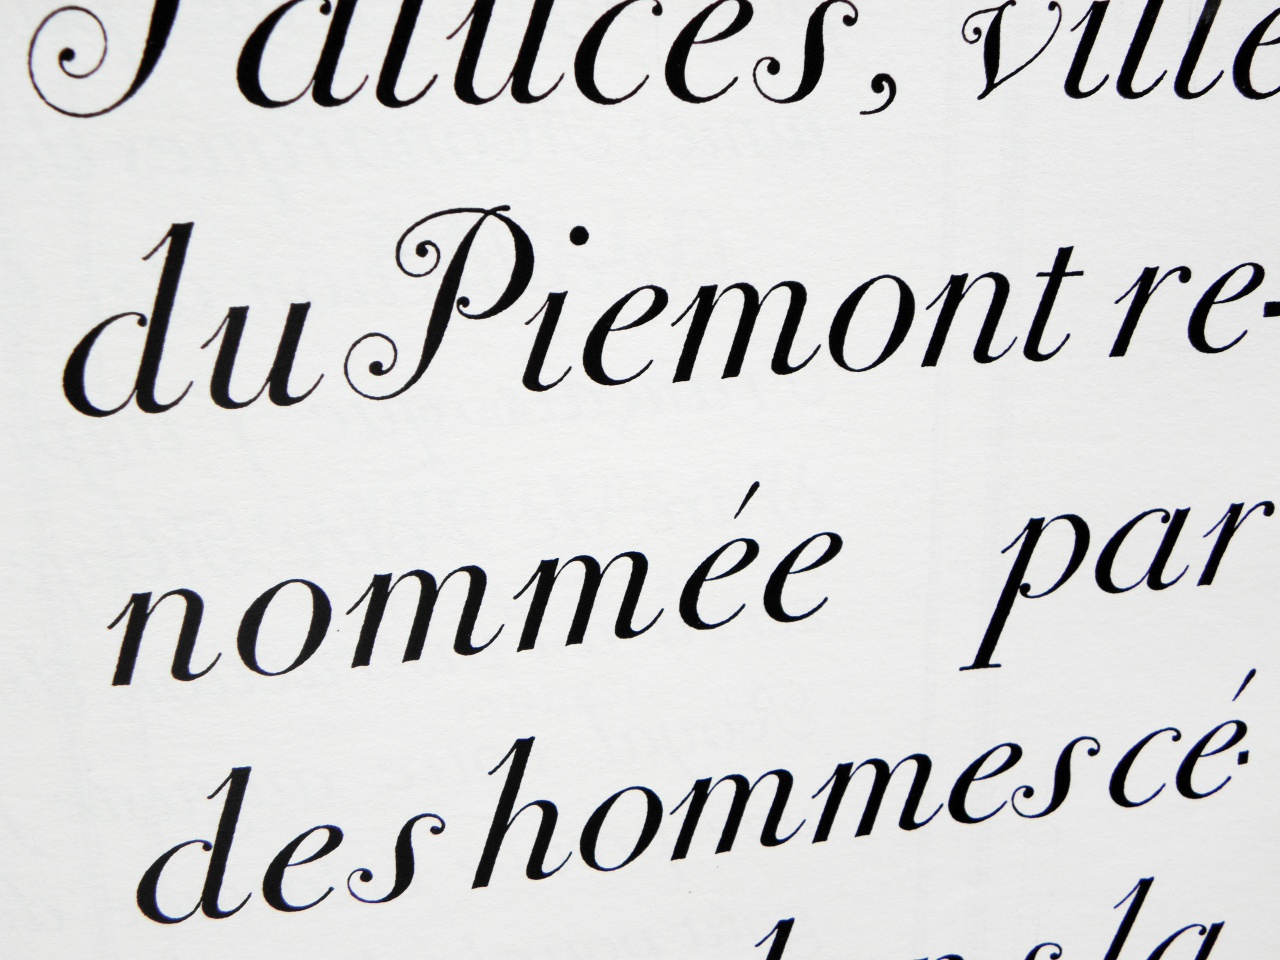 ville
du Piemont re-
nommée par
des hommes cé-
la